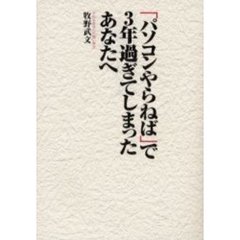 「パソコンやらねば」で
3年過ぎてしまった
あなたへ
牧野武文